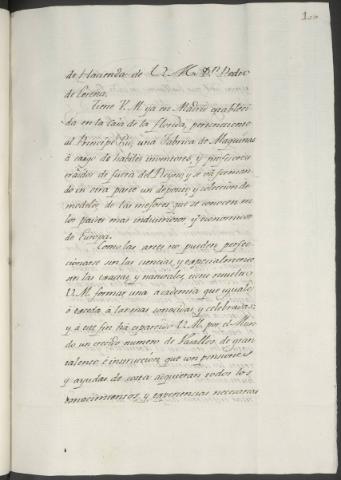 de Hacienda de V. M. Dn. Pedro
de Lerena.
Tiene V. M. ya en Madrid estableci-
da en la casa de la Florida, perteneciente
al Principe Pio, una Fabrica de Maquinas
à cargo de habiles inventores, y profesores
traidos de fuera del Reyno; y se và forman-
do en otra parte un deposito y coleccion de
modelos de las mejores que se conocen en
los paises mas industriosos y economicos
de Europa.
Como las artes no pueden perfec-
cionarse sin las ciencias y especialmente
sin las exactas y naturales, tiene resuelto
V. M. formar una academia que iguale
ò exceda à las mas conocidas y celebradas;
y à este fin ha esparcido V. M. por el Mun-
do un crecido numero de Vasallos de gran
talento è instruccion, que con pensiones
y ayudas de costa adquieran todos los
conocimientos y experiencias necesarias